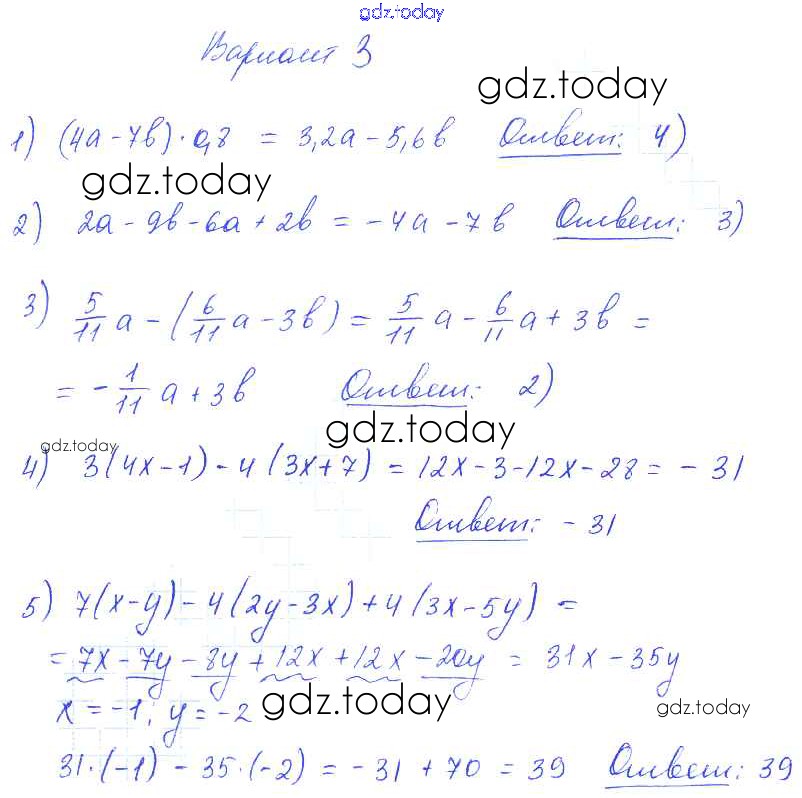 gdz.today
Вариант 3
gdz.today
1) (4a-7b)·0,8 = 3,2a-5,6b Ответ: 4)
gdz.today
2) 2a-9b-6a+2b = -4a-7b Ответ: 3)
3) 5/11 a - (6/11 a - 3b) = 5/11 a - 6/11 a + 3b =
= - 1/11 a + 3b Ответ: 2)
gdz.today
gdz.today
4) 3(4x-1)-4(3x+7) = 12x-3-12x-28 = -31
Ответ: -31
5) 7(x-y)-4(2y-3x)+4(3x-5y) =
= 7x-7y-8y+12x+12x-20y = 31x-35y
x = -1; y = -2
gdz.today
gdz.today
31·(-1) - 35·(-2) = -31 + 70 = 39 Ответ: 39